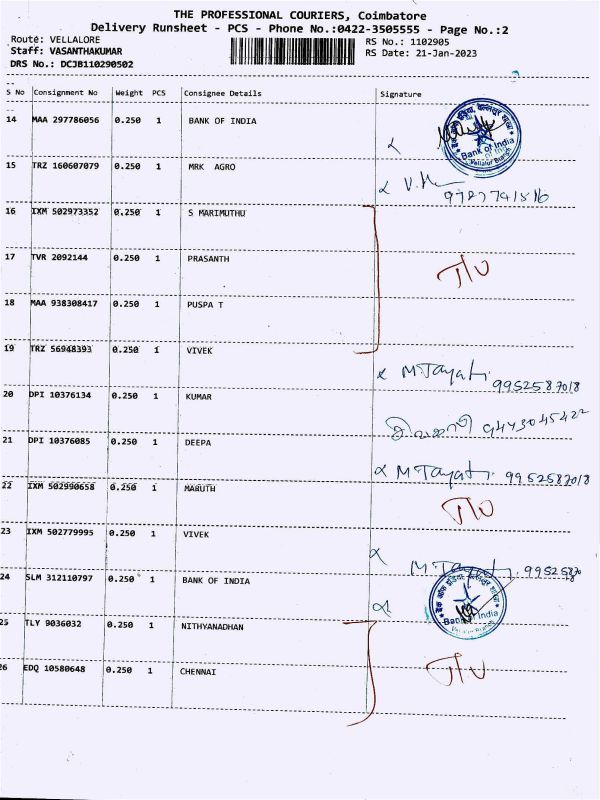 THE PROFESSIONAL COURIERS, Coimbatore
Delivery Runsheet - PCS - Phone No.:0422-3505555 - Page No.:2
Route: VELLALORE
RS No.: 1102905
Staff: VASANTHAKUMAR
RS Date: 21-Jan-2023
DRS No.: DCJB110290502
S No Consignment No Weight PCS Consignee Details Signature
14 MAA 297786056 0.250 1 BANK OF INDIA
Bank of India
Vellalur Branch
15 TRZ 160607079 0.250 1 MRK AGRO
16 IXM 502973352 0.250 1 S MARIMUTHU
17 TVR 2092144 0.250 1 PRASANTH
18 MAA 938308417 0.250 1 PUSPA T
19 TRZ 56948393 0.250 1 VIVEK M Tayati 9952587018
20 DPI 10376134 0.250 1 KUMAR 9443045422
21 DPI 10376085 0.250 1 DEEPA M Tayati 9952587018
22 IXM 502990658 0.250 1 MARUTH
23 IXM 502779995 0.250 1 VIVEK M Tayati 99525870
24 SLM 312110797 0.250 1 BANK OF INDIA
Bank of India
Vellalur Branch
25 TLY 9036032 0.250 1 NITHYANADHAN
26 EDQ 10580648 0.250 1 CHENNAI